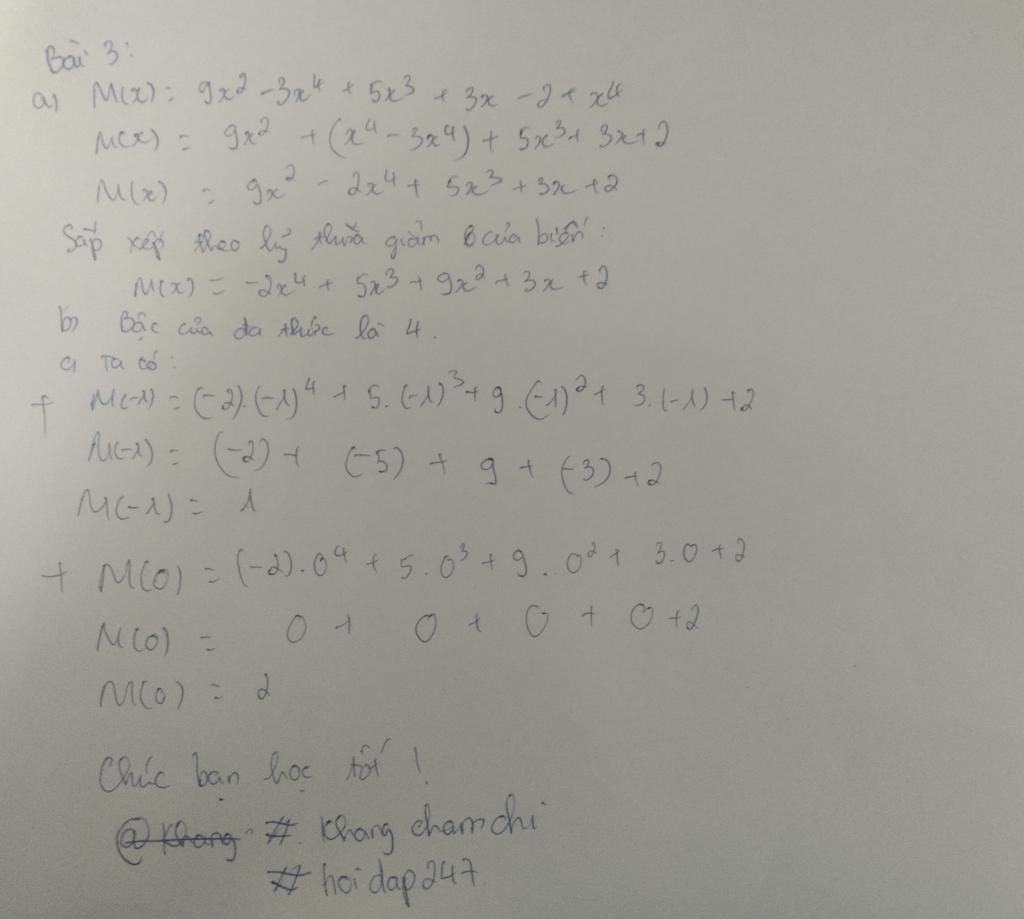 Bài 3:
a) M(x) = 9x² - 3x⁴ + 5x³ + 3x - 2 + x⁴
M(x) = 9x² + (x⁴ - 3x⁴) + 5x³ + 3x + 2
M(x) = 9x² - 2x⁴ + 5x³ + 3x + 2
Sắp xếp theo lũy thừa giảm của biến:
M(x) = -2x⁴ + 5x³ + 9x² + 3x + 2
b) Bậc của đa thức là 4.
c) Ta có:
+ M(-1) = (-2).(-1)⁴ + 5.(-1)³ + 9.(-1)² + 3.(-1) + 2
M(-1) = (-2) + (-5) + 9 + (-3) + 2
M(-1) = 1
+ M(0) = (-2).0⁴ + 5.0³ + 9.0² + 3.0 + 2
M(0) = 0 + 0 + 0 + 0 + 2
M(0) = 2
Chúc bạn học tốt!
@Khang # Khang chamchi
# hoidap247